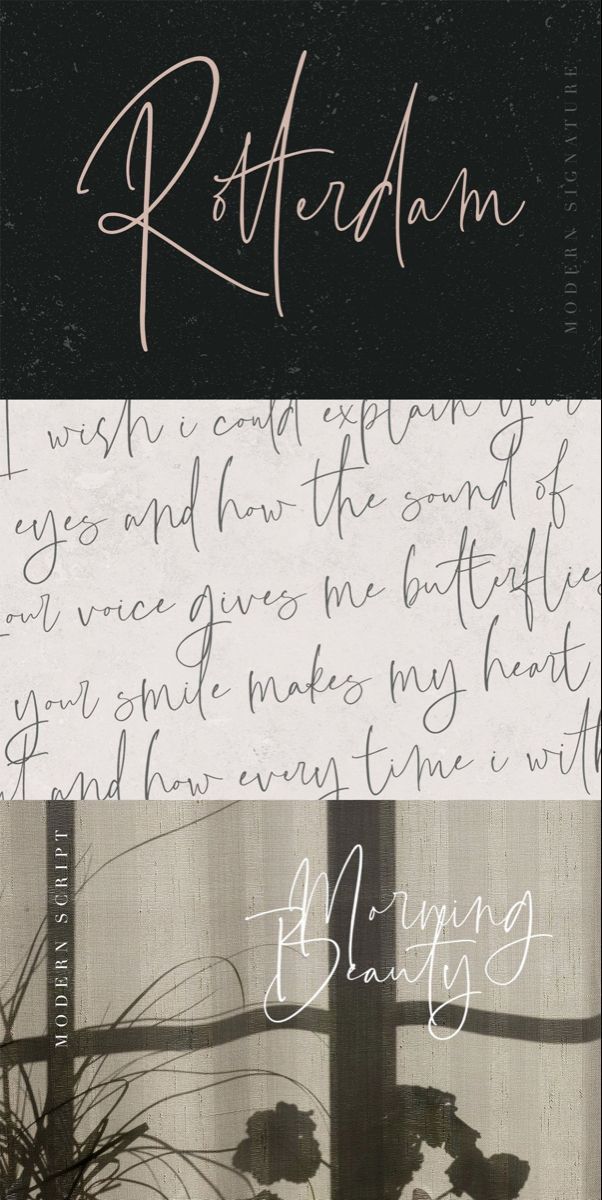 Rotterdam
MODERN SIGNATURE
I wish i could explain your
eyes and how the sound of
your voice gives me butterflies
your smile makes my heart
and how every time i with
MODERN SCRIPT
Morning
Beauty